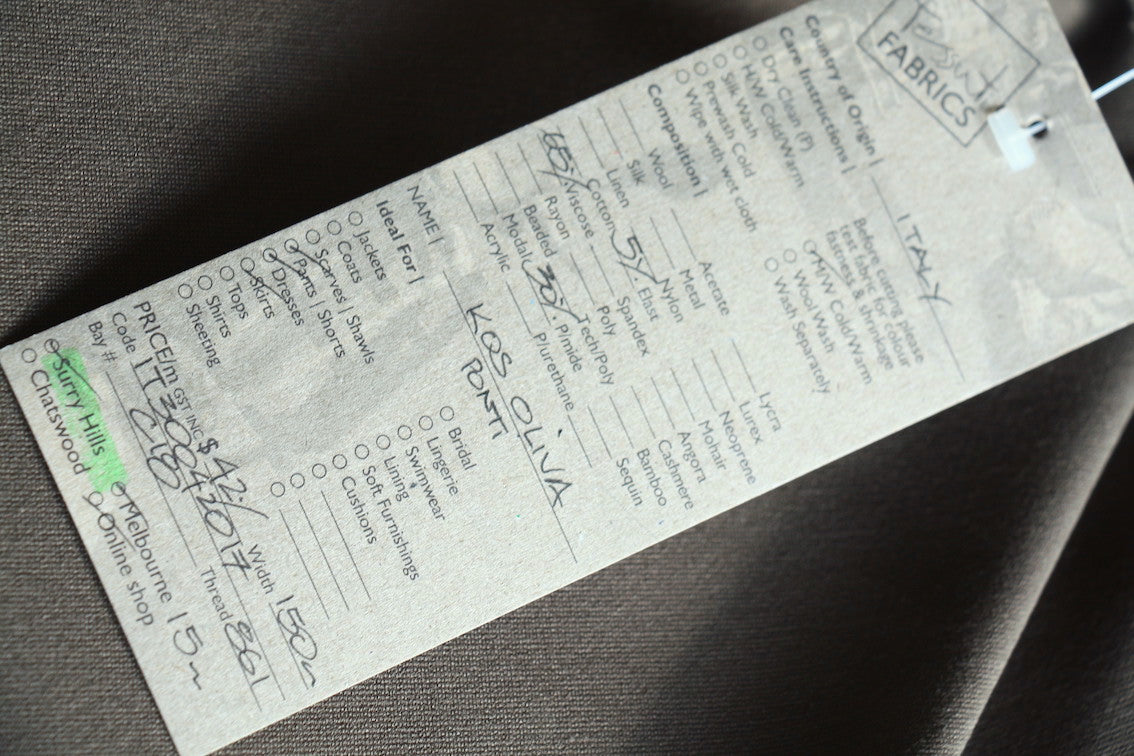 Tessuti
FABRICS
Country of Origin | ITALY
Care Instructions |
Dry Clean (P)
H/W Cold/Warm
Silk Wash
Prewash Cold
Wipe with wet cloth
Before cutting please
test fabric for colour
fastness & shrinkage
H/W Cold/Warm
Wool Wash
Wash Separately
Composition |
Wool
Silk
Linen
Cotton
65% Viscose
Rayon
Beaded
Modal
Acrylic
Acetate
Metal
Nylon
5% Elast
Spandex
Poly
Tech/Poly
30% P/mide
P/urethane
Lycra
Lurex
Neoprene
Mohair
Angorra
Cashmere
Bamboo
Sequin
NAME | KOS OLIVA
PONTI
Ideal For |
Jackets
Coats
Scarves | Shawls
Pants | Shorts
Dresses
Skirts
Tops
Shirts
Sheeting
Bridal
Lingerie
Swimwear
Lining
Soft Furnishings
Cushions
PRICE/m GST INC $ 42 Width 150
Code IT300842017 Thread 861
Bay #
Surry Hills
Chatswood
Melbourne 15m
Online shop